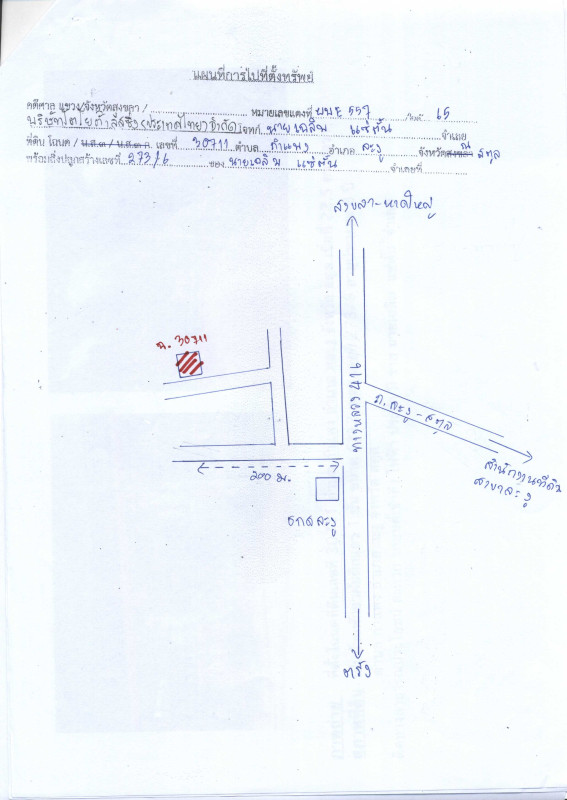 แผนที่การไปที่ตั้งทรัพย์
คดีศาล แขวง/จังหวัดสงขลา / .......... หมายเลขแดงที่ ผบE 557 / 65
บริษัทโตโยต้า ลีสซิ่ง (ประเทศไทย) จำกัด โจทก์ นายเฉลิม แซ่ตั้น จำเลย
ที่ดิน โฉนด / น.ส.๓ / น.ส.๓ ก. เลขที่ 30711 ตำบล กำแพง อำเภอ ละงู จังหวัดสงขลา สตูล
พร้อมสิ่งปลูกสร้างเลขที่ 273/6 ของ นายเฉลิม แซ่ตั้น จำเลยที่
สงขลา-หาดใหญ่
ฉ. 30711
ทางหลวง 416
ถ. ละงู - สตูล
200 ม.
สำนักงานที่ดิน
สาขาละงู
ธกส ละงู
ตรัง